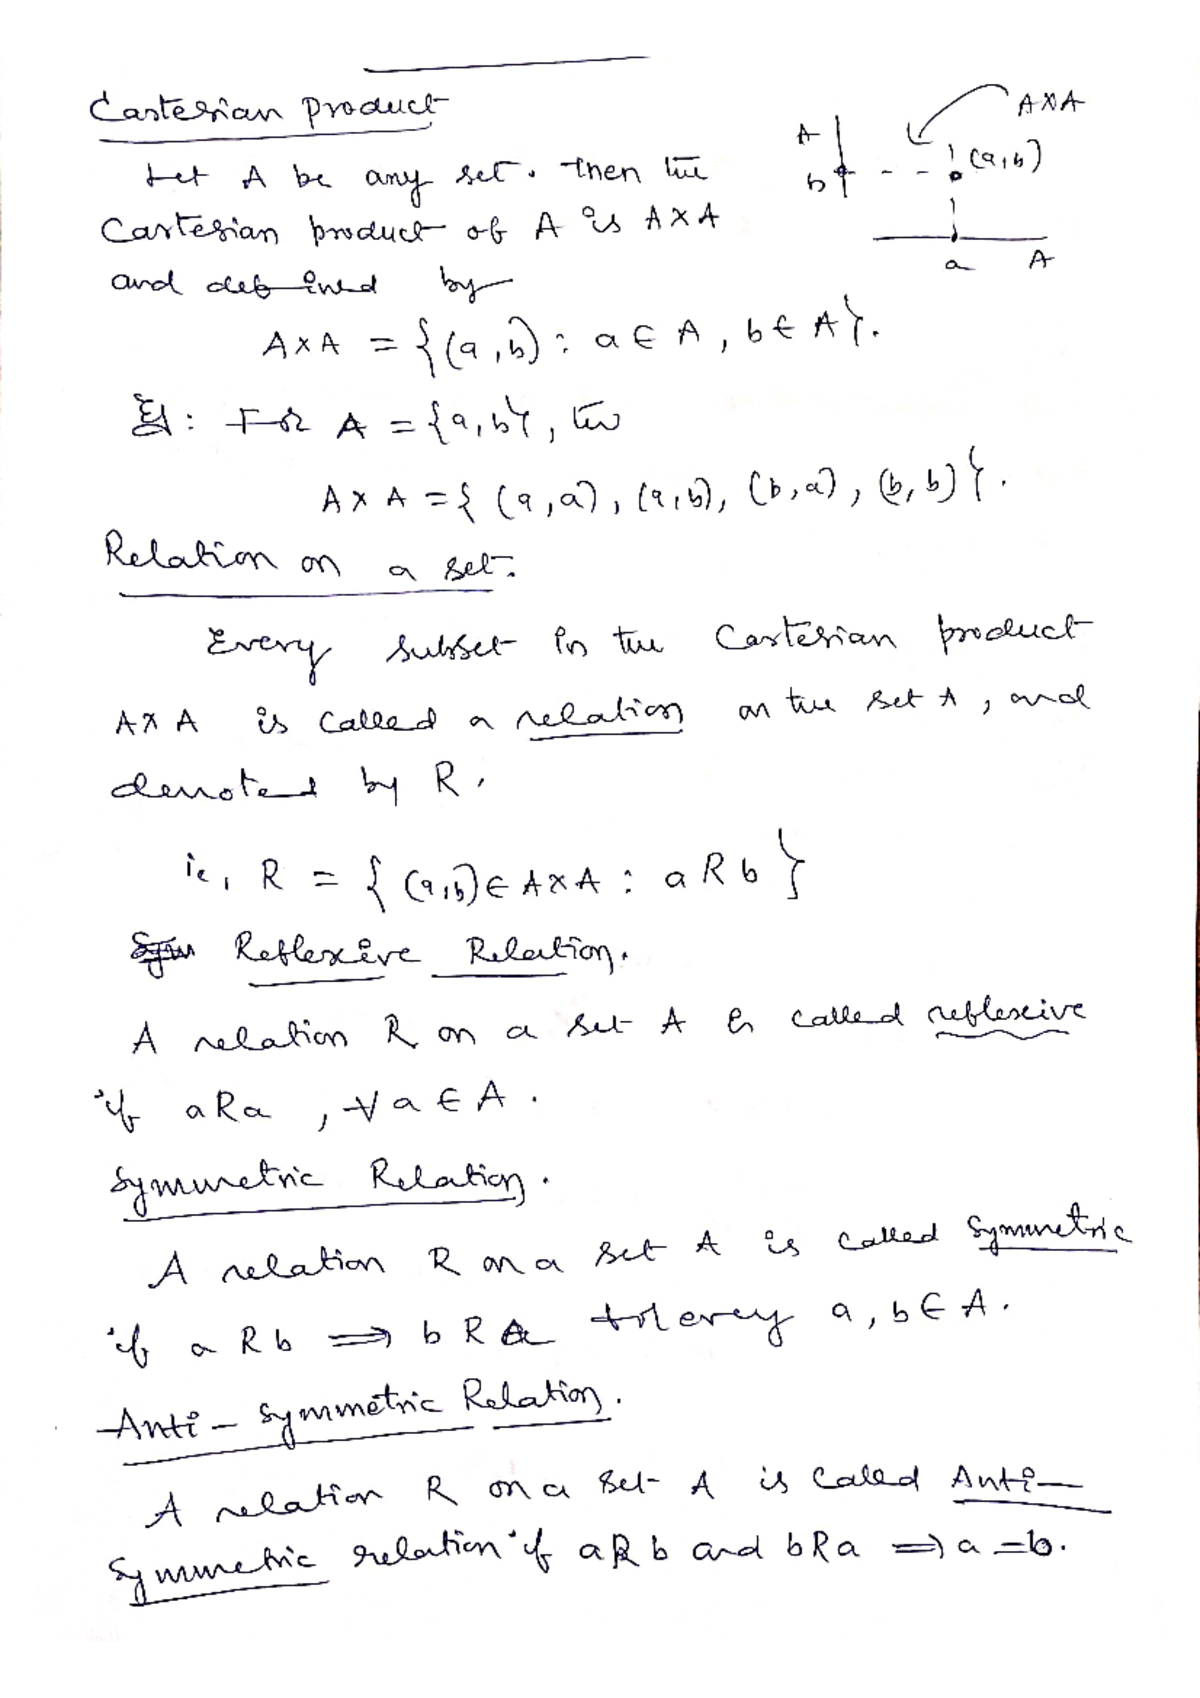 Cartesian product
Let A be any set. Then the
Cartesian product of A is A×A
and defined by
A
b
(a,b)
A×A
a
A
A×A = {(a,b) : a∈A, b∈A}.
Eg: For A = {a,b}, the
A×A = { (a,a), (a,b), (b,a), (b,b) }.
Relation on a set.
Every subset in the Cartesian product
A×A is called a relation on the set A, and
denoted by R.
ie, R = { (a,b)∈A×A : a R b }
Reflexive Relation.
A relation R on a set A is called reflexive
if aRa, ∀a∈A.
Symmetric Relation.
A relation R on a set A is called Symmetric
if a R b ⟹ b R a for every a, b∈A.
Anti-Symmetric Relation.
A relation R on a set A is called Anti-
Symmetric relation if aRb and bRa ⟹ a=b.